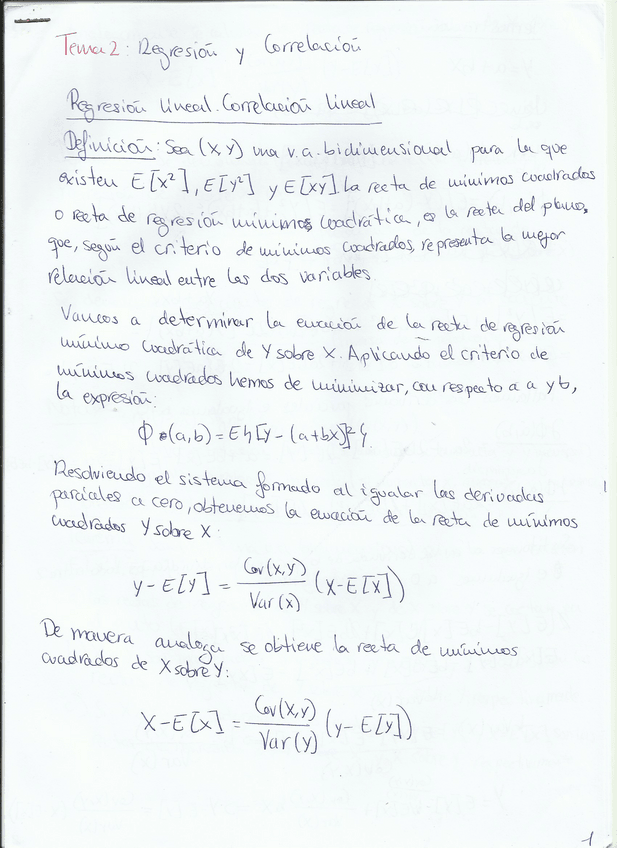 Tema 2: Regresión y Correlación
Regresión lineal. Correlación lineal
Definición: Sea (X,Y) una v.a. bidimensional para la que
existen E[X²], E[Y²] y E[XY]. La recta de mínimos cuadrados
o recta de regresión mínimos cuadrática, es la recta del plano,
que, según el criterio de mínimos cuadrados, representa la mejor
relación lineal entre las dos variables.
Vamos a determinar la ecuación de la recta de regresión
mínimo cuadrática de Y sobre X. Aplicando el criterio de
mínimos cuadrados hemos de minimizar, con respecto a a y b,
la expresión:
Φ(a,b) = E{[Y-(a+bX)]²}
Resolviendo el sistema formado al igualar las derivadas
parciales a cero, obtenemos la ecuación de la recta de mínimos
cuadrados Y sobre X:
y - E[Y] = Cov(X,Y) / Var(X) (X - E[X])
De manera analoga se obtiene la recta de mínimos
cuadrados de X sobre Y:
X - E[X] = Cov(X,Y) / Var(Y) (y - E[Y])
1